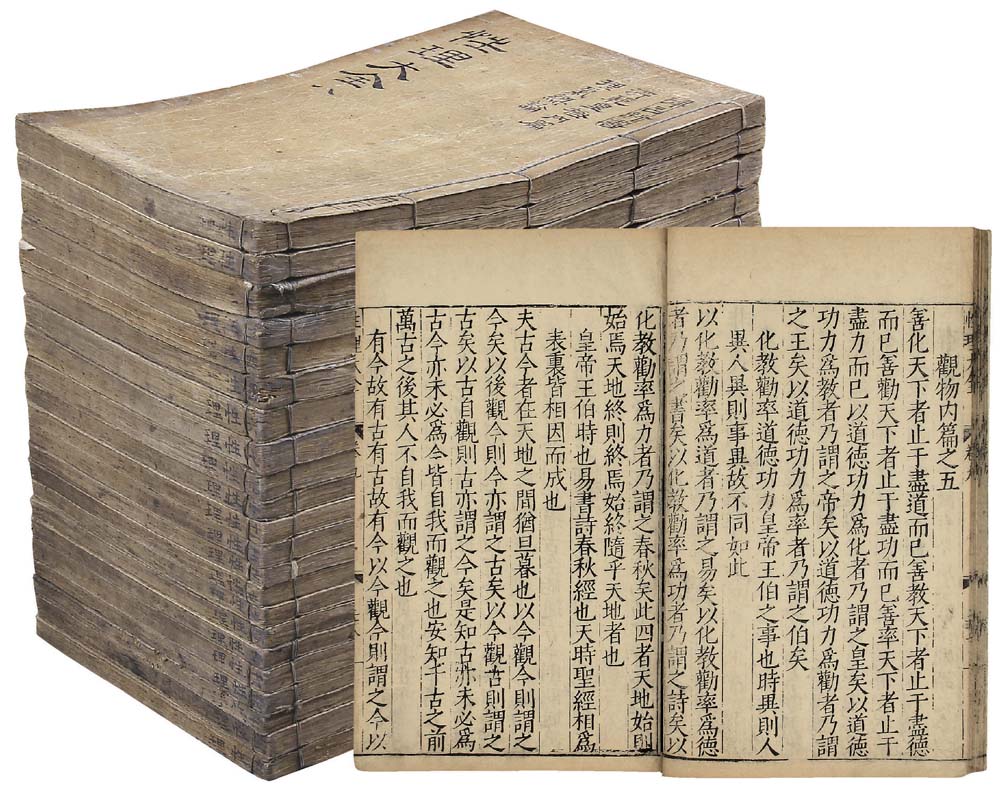 性理大全
觀物內篇之五
善化天下者止于盡道而已善教天下者止于盡德
而已善勸天下者止于盡功而已善率天下者止于
盡力而已以道德功力爲化者乃謂之皇矣以道德
功力爲教者乃謂之帝矣以道德功力爲勸者乃謂
之王矣以道德功力爲率者乃謂之伯矣
化教勸率道德功力皇帝王伯之事也時異則人
異人異則事異故不同如此
以化教勸率爲道者乃謂之易矣以化教勸率爲德
者乃謂之書矣以化教勸率爲功者乃謂之詩矣以
化教勸率爲力者乃謂之春秋矣此四者天地始則
始焉天地終則終焉始終隨乎天地者也
皇帝王伯時也易書詩春秋經也天時聖經相爲
表裏皆相因而成也
夫古今者在天地之間猶旦暮也以今觀今則謂之
今矣以後觀今則今亦謂之古矣以今觀古則謂之
古矣以古自觀則古亦謂之今矣是知古亦未必爲
古今亦未必爲今皆自我而觀之也安知千古之前
萬古之後其人不自我而觀之也
有今故有古有古故有今以今觀今則謂之今以
性理
性理
性理
性理
性理
性理
性理
性理
性理
性理
性理